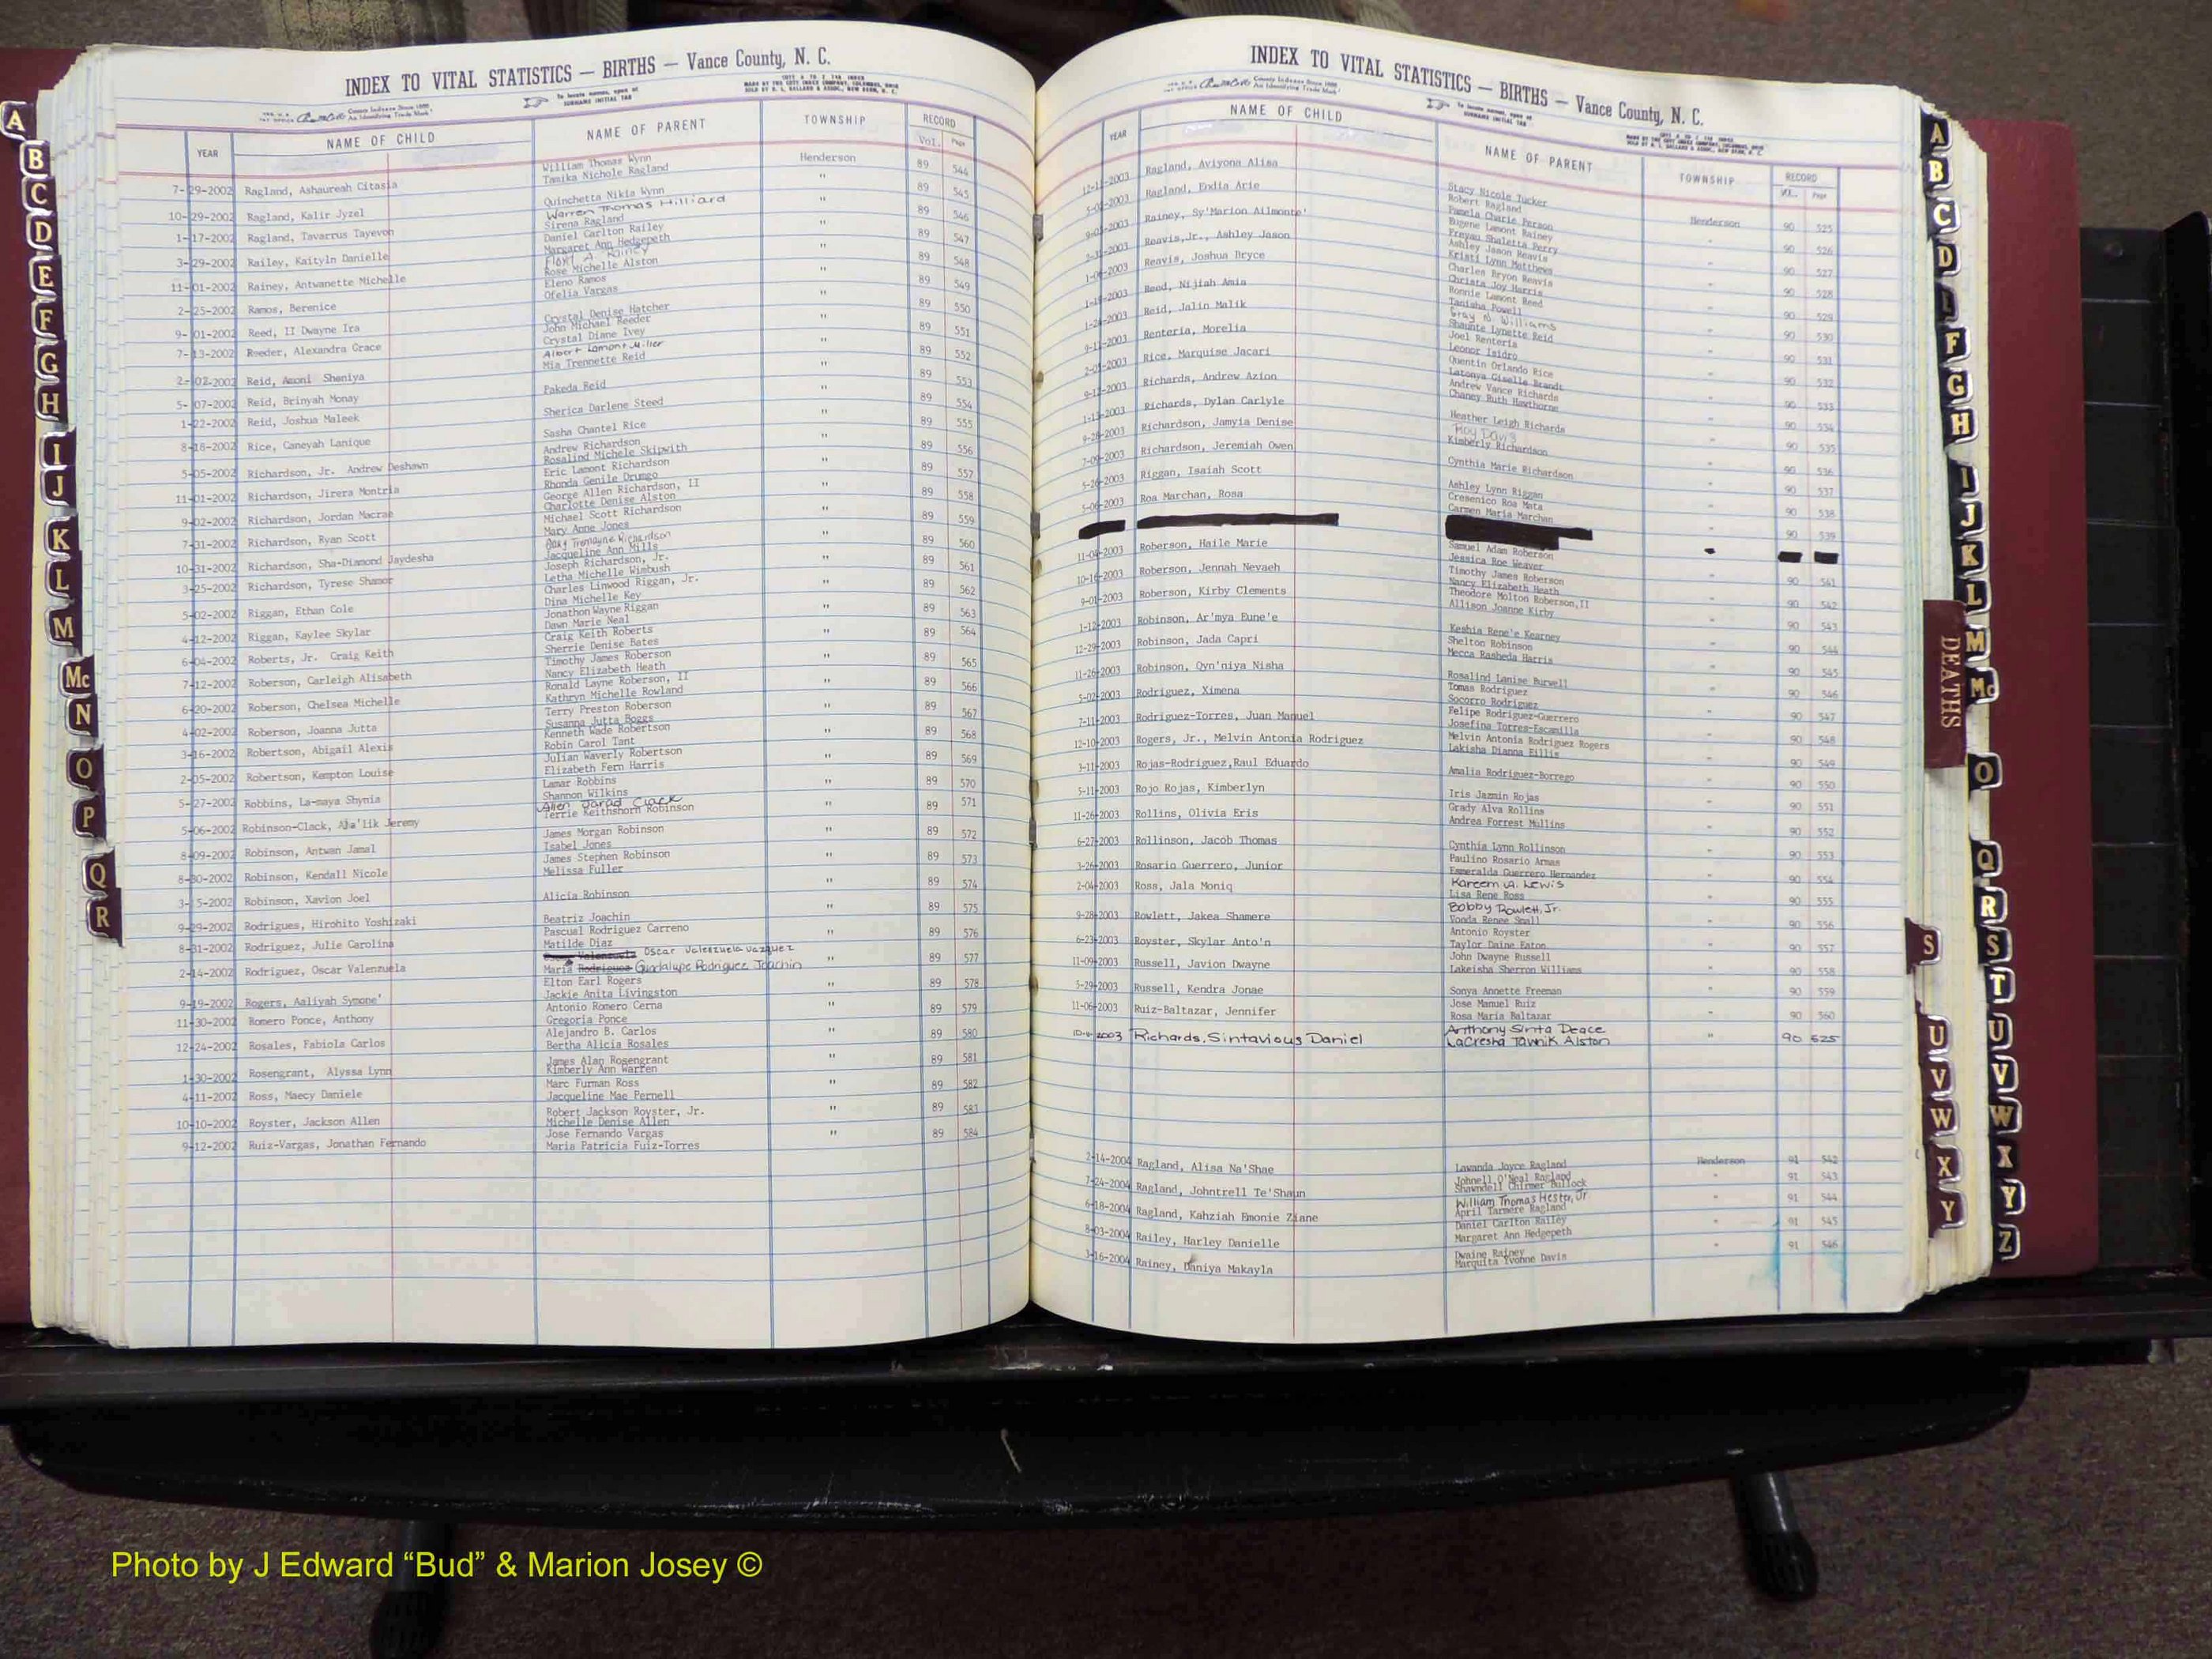 INDEX TO VITAL STATISTICS — BIRTHS — Vance County, N. C.
To locate names, open at
SURNAME INITIAL TAB
YEAR NAME OF CHILD NAME OF PARENT TOWNSHIP RECORD
Vol. Page
William Thomas Wynn
7-29-2002 Ragland, Ashaureah Citasia Tamika Nichole Ragland Henderson 89 544
10-29-2002 Ragland, Kalir Jyzel Quinchetta Nikia Wynn " 89 545
Warren Thomas Hilliard
1-17-2002 Ragland, Tavarrus Tayevon Sirena Ragland " 89 546
Daniel Carlton Railey
3-29-2002 Railey, Kaityln Danielle Margaret Ann Hedgepeth " 89 547
Floyd A. Rainey
11-01-2002 Rainey, Antwanette Michelle Rose Michelle Alston " 89 548
Eleno Ramos
2-25-2002 Ramos, Berenice Ofelia Vargas " 89 549
9-01-2002 Reed, II Dwayne Ira Crystal Denise Hatcher " 89 550
John Michael Reeder
7-13-2002 Reeder, Alexandra Grace Crystal Diane Ivey " 89 551
Albert Lamont Miller
2-02-2002 Reid, Amoni Sheniya Mia Trennette Reid " 89 552
5-07-2002 Reid, Brinyah Monay Pakeda Reid " 89 553
1-22-2002 Reid, Joshua Maleek Sherica Darlene Steed " 89 554
8-18-2002 Rice, Caneyah Lanique Sasha Chantel Rice " 89 555
Andrew Richardson
5-05-2002 Richardson, Jr. Andrew Deshawn Rosalind Michele Skipwith " 89 556
Eric Lamont Richardson
11-01-2002 Richardson, Jirera Montria Rhonda Genile Drumgo " 89 557
George Allen Richardson, II
9-02-2002 Richardson, Jordan Macrae Charlotte Denise Alston " 89 558
Michael Scott Richardson
7-31-2002 Richardson, Ryan Scott Mary Anne Jones " 89 559
Tremayne Richardson
10-31-2002 Richardson, Sha-Diamond Jaydesha Jacqueline Ann Mills " 89 560
Joseph Richardson, Jr.
3-25-2002 Richardson, Tyrese Shamor Letha Michelle Wimbush " 89 561
Charles Linwood Riggan, Jr.
5-02-2002 Riggan, Ethan Cole Dina Michelle Key " 89 562
Jonathon Wayne Riggan
4-12-2002 Riggan, Kaylee Skylar Dawn Marie Neal " 89 563
Craig Keith Roberts
6-04-2002 Roberts, Jr. Craig Keith Sherrie Denise Bates " 89 564
Timothy James Roberson
7-12-2002 Roberson, Carleigh Alisabeth Nancy Elizabeth Heath " 89 565
Ronald Layne Roberson, II
6-20-2002 Roberson, Chelsea Michelle Kathryn Michelle Rowland " 89 566
Terry Preston Roberson
4-02-2002 Roberson, Joanna Jutta Susanna Jutta Boggs " 89 567
Kenneth Wade Robertson
3-16-2002 Robertson, Abigail Alexis Robin Carol Tant " 89 568
Julian Waverly Robertson
2-05-2002 Robertson, Kempton Louise Elizabeth Fern Harris " 89 569
Lamar Robbins
5-27-2002 Robbins, La-maya Shynia Shannon Wilkins " 89 570
Allen Jarad Clack
5-06-2002 Robinson-Clack, Ala'lik Jeremy Terrie Keithshorn Robinson " 89 571
James Morgan Robinson
8-09-2002 Robinson, Antwan Jamal Isabel Jones " 89 572
James Stephen Robinson
8-30-2002 Robinson, Kendall Nicole Melissa Fuller " 89 573
3-15-2002 Robinson, Xavion Joel Alicia Robinson " 89 574
9-29-2002 Rodrigues, Hirohito Yoshizaki Beatriz Joachin " 89 575
Pascual Rodriguez Carreno
8-31-2002 Rodriguez, Julie Carolina Matilde Diaz " 89 576
Valenzuela Oscar Valenzuela Vazquez
2-14-2002 Rodriguez, Oscar Valenzuela Maria Rodriguez Guadalupe Rodriguez Joachin " 89 577
Elton Earl Rogers
9-19-2002 Rogers, Aaliyah Symone' Jackie Anita Livingston " 89 578
Antonio Romero Cerna
11-30-2002 Romero Ponce, Anthony Gregoria Ponce " 89 579
Alejandro B. Carlos
12-24-2002 Rosales, Fabiola Carlos Bertha Alicia Rosales " 89 580
James Alan Rosengrant
1-30-2002 Rosengrant, Alyssa Lynn Kimberly Ann Warren " 89 581
Marc Furman Ross
4-11-2002 Ross, Maecy Daniele Jacqueline Mae Pernell " 89 582
Robert Jackson Royster, Jr.
10-10-2002 Royster, Jackson Allen Michelle Denise Allen " 89 583
Jose Fernando Vargas
9-12-2002 Ruiz-Vargas, Jonathan Fernando Maria Patricia Fuiz-Torres " 89 584
INDEX TO VITAL STATISTICS — BIRTHS — Vance County, N. C.
To locate names, open at
SURNAME INITIAL TAB
YEAR NAME OF CHILD NAME OF PARENT TOWNSHIP RECORD
Vol. Page
2003 Ragland, Aviyona Alisa Stacy Nicole Tucker Henderson 90 525
Robert Ragland
2003 Ragland, Endia Arie Pamela Charie Person " 90 526
Eugene Lamont Rainey
2003 Rainey, Sy'Marion Ailmonte' Freyau Shaletta Perry " 90 527
Ashley Jason Reavis
2003 Reavis,Jr., Ashley Jason Kristi Lynn Matthews " 90 528
Charles Bryon Reavis
2003 Reavis, Joshua Bryce Christa Joy Harris " 90 529
Ronnie Lamont Reed
2003 Reed, Nijiah Amia Tanisha Powell " 90 530
Gray N Williams
2003 Reid, Jalin Malik Shaunte Lynette Reid " 90 531
Joel Renteria
2003 Renteria, Morelia Leonor Isidro " 90 532
Quentin Orlando Rice
2003 Rice, Marquise Jacari Latonya Giselle Brandt " 90 533
Andrew Vance Richards
2003 Richards, Andrew Azion Chaney Ruth Hawthorne " 90 534
2003 Richards, Dylan Carlyle Heather Leigh Richards " 90 535
Roy Davis
2003 Richardson, Jamyia Denise Kimberly Richardson " 90 536
7-09-2003 Richardson, Jeremiah Owen Cynthia Marie Richardson " 90 537
5-26-2003 Riggan, Isaiah Scott Ashley Lynn Riggan " 90 538
Cresenico Roa Mata
5-06-2003 Roa Marchan, Rosa Carmen Maria Marchan " 90 539
Samuel Adam Roberson
11-04-2003 Roberson, Haile Marie Jessica Roe Weaver " 90 541
Timothy James Roberson
10-16-2003 Roberson, Jennah Nevaeh Nancy Elizabeth Heath " 90 542
Theodore Molton Roberson,II
9-01-2003 Roberson, Kirby Clements Allison Joanne Kirby " 90 543
1-12-2003 Robinson, Ar'mya Eune'e Keshia Rene'e Kearney " 90 544
Shelton Robinson
12-29-2003 Robinson, Jada Capri Mecca Rasheda Harris " 90 545
11-26-2003 Robinson, Qvn'niya Nisha Rosalind Lanise Burwell " 90 546
Tomas Rodriguez
5-02-2003 Rodriguez, Ximena Socorro Rodriguez " 90 547
Felipe Rodriguez-Guerrero
7-11-2003 Rodriguez-Torres, Juan Manuel Josefina Torres-Escamilla " 90 548
Melvin Antonia Rodriguez Rogers
12-10-2003 Rogers, Jr., Melvin Antonia Rodriguez Lakisha Dianna Eillis " 90 549
3-11-2003 Rojas-Rodriguez,Raul Eduardo Amalia Rodriguez-Borrego " 90 550
5-11-2003 Rojo Rojas, Kimberlyn Iris Jazmin Rojas " 90 551
Grady Alva Rollins
11-26-2003 Rollins, Olivia Eris Andrea Forrest Mullins " 90 552
6-27-2003 Rollinson, Jacob Thomas Cynthia Lynn Rollinson " 90 553
Paulino Rosario Armas
3-26-2003 Rosario Guerrero, Junior Esmeralda Guerrero Hernandez " 90 554
Kareem A. Lewis
2-04-2003 Ross, Jala Moniq Lisa Rene Ross " 90 555
Bobby Rowlett, Jr.
9-28-2003 Rowlett, Jakea Shamere Vonda Renee Small " 90 556
Antonio Royster
6-23-2003 Royster, Skylar Anto'n Taylor Daine Eaton " 90 557
John Dwayne Russell
11-09-2003 Russell, Javion Dwayne Lakeisha Sherron Williams " 90 558
5-29-2003 Russell, Kendra Jonae Sonya Annette Freeman " 90 559
Jose Manuel Ruiz
11-06-2003 Ruiz-Baltazar, Jennifer Rosa Maria Baltazar " 90 560
Anthony Sinta Deace
2003 Richards, Sintavious Daniel LaCresha Tawnik Alston " 90 525
2-14-2004 Ragland, Alisa Na'Shae Lawanda Joyce Ragland Henderson 91 542
Johnell O'Neal Ragland
7-24-2004 Ragland, Johntrell Te'Shaun Shawndell Chirmer Bullock " 91 543
William Thomas Hester, Jr
6-18-2004 Ragland, Kahziah Emonie Ziane April Tarmere Ragland " 91 544
Daniel Carlton Railey
8-03-2004 Railey, Harley Danielle Margaret Ann Hedgepeth " 91 545
Dwaine Rainey
3-16-2004 Rainey, Daniya Makayla Marquita Yvonne Davis " 91 546
A
B
C
D
E
F
G
H
I
J
K
L
M
Mc
N
O
P
Q
R
A
B
C
D
F
G
H
I
J
K
L
M
Mc
DEATHS
O
Q
R
S
S
T
U
U
V
V
W
W
X
X
Y
Y
Z
Photo by J Edward “Bud” & Marion Josey ©